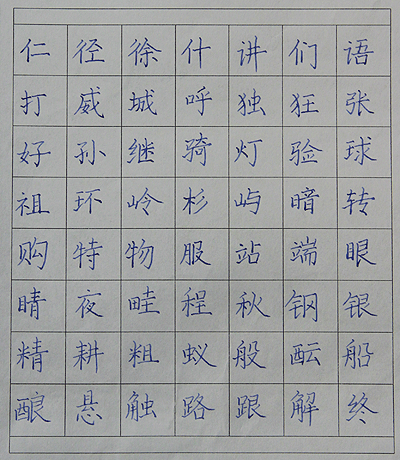 仁径徐什讲们语
打威城呼独狂张
好孙继骑灯验球
祖环岭杉屿暗转
购特物服站端眼
睛夜畦程秋钢银
精耕粗蚁般酝船
酿悬触路跟解终